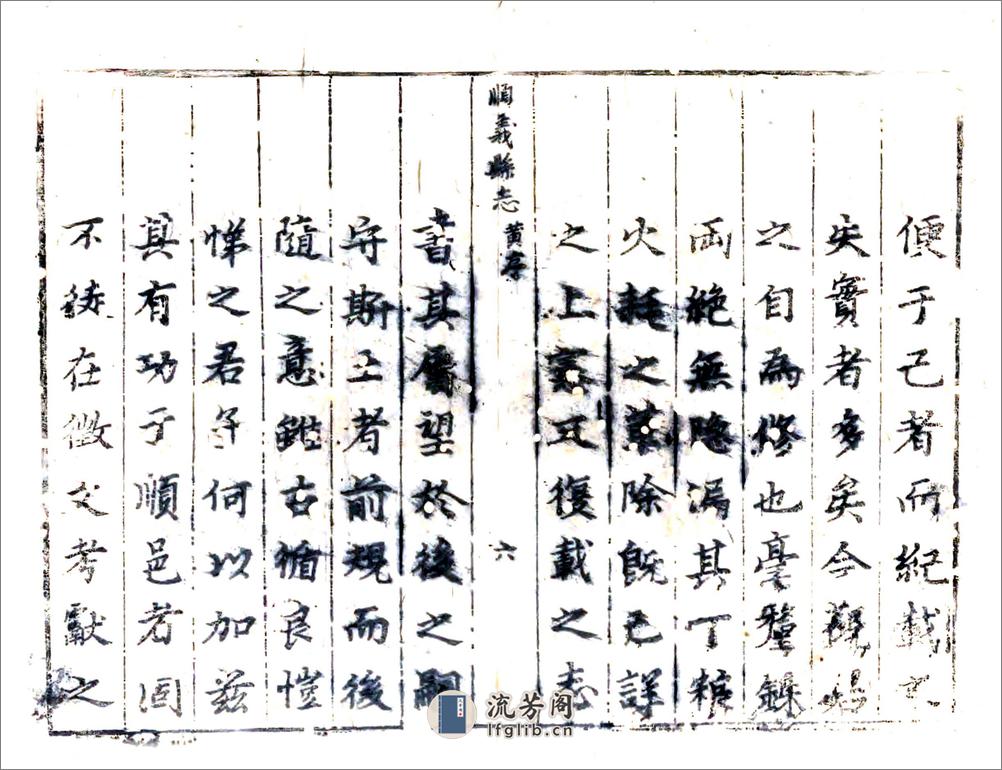 便于己者而紀載
失實者多矣今觀
之自為修也毫釐銖
兩絕無隱漏其丁糧
火耗之除既已詳
之上憲又復載之志
順義縣志 黄序 六
書其屬望於後之嗣
守斯土者前規而後
隨之意古循良愷
悌之君子何以加茲
其有功于順邑者固
不在徵文考獻之
流芳阁
lfglib.cn